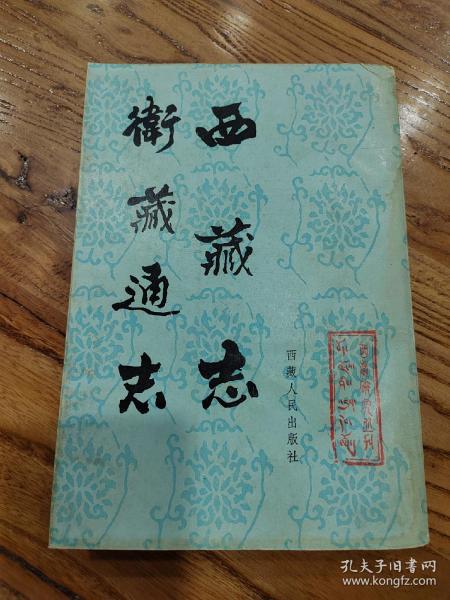 西藏志
衛藏通志
西藏人民出版社
西藏研究丛刊
孔夫子旧书网
www.kongfz.com